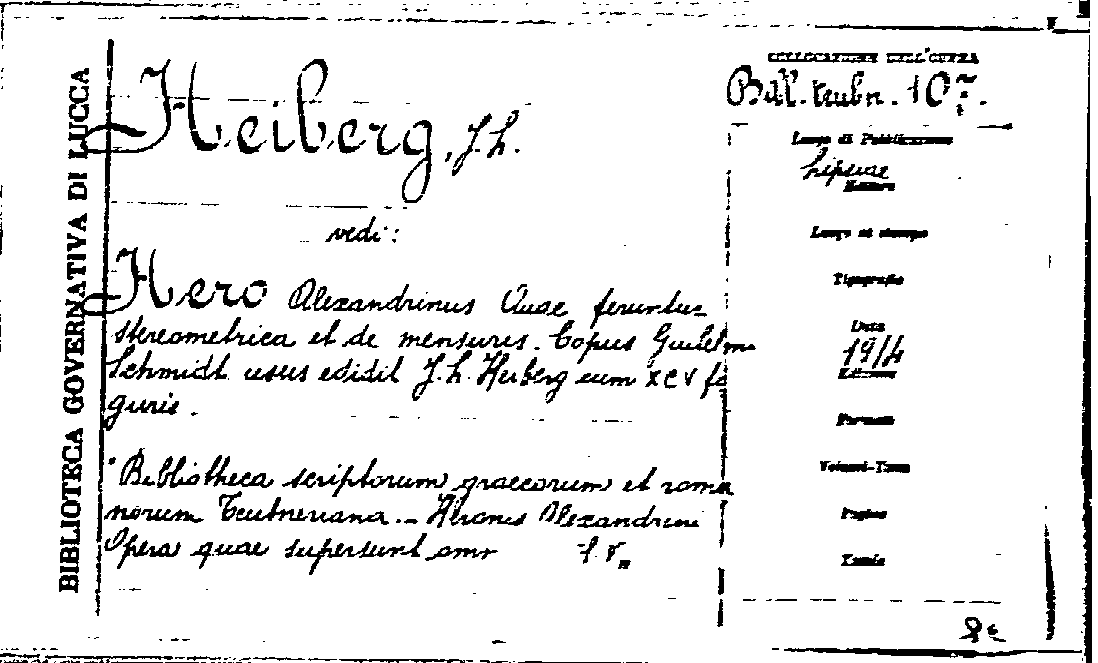 BIBLIOTECA GOVERNATIVA DI LUCCA
Heiberg, J. L.
vedi:
Hero Alexandrinus Quae feruntur
stereometrica et de mensuris. Copiis Guilelmi
Schmidt usus edidit J. L. Heiberg cum XCV fi
guris.
"Bibliotheca scriptorum graecorum et roma
norum Teubneriana. - Heronis Alexandrini
Opera quae supersunt omn
COLLOCAZIONE DELL'OPERA
Bibl. teubn. 107.
Luogo di Pubblicazione
Lipsiae
Editore
Luogo di stampa
Tipografia
Data
1914
Edizione
Formato
Volumi-Tomi
Pagine